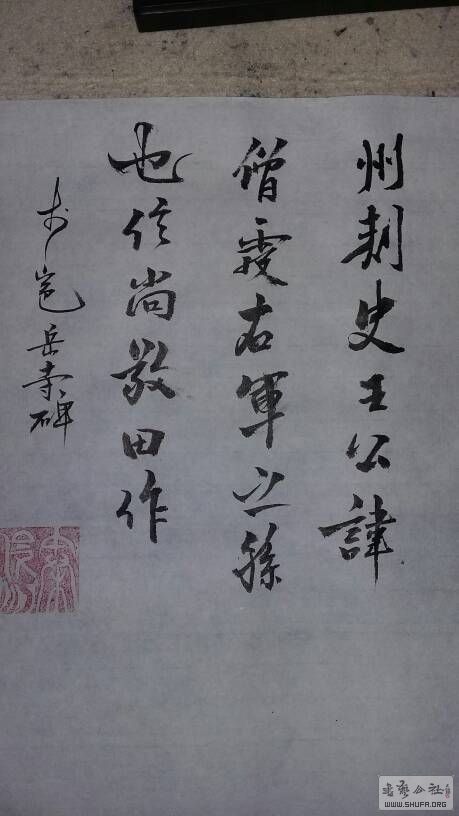 州刺史王公諱
僧虔右軍之孫
也信尚敬田作
邕岳寺碑
書藝公社
WWW.SHUFA.ORG